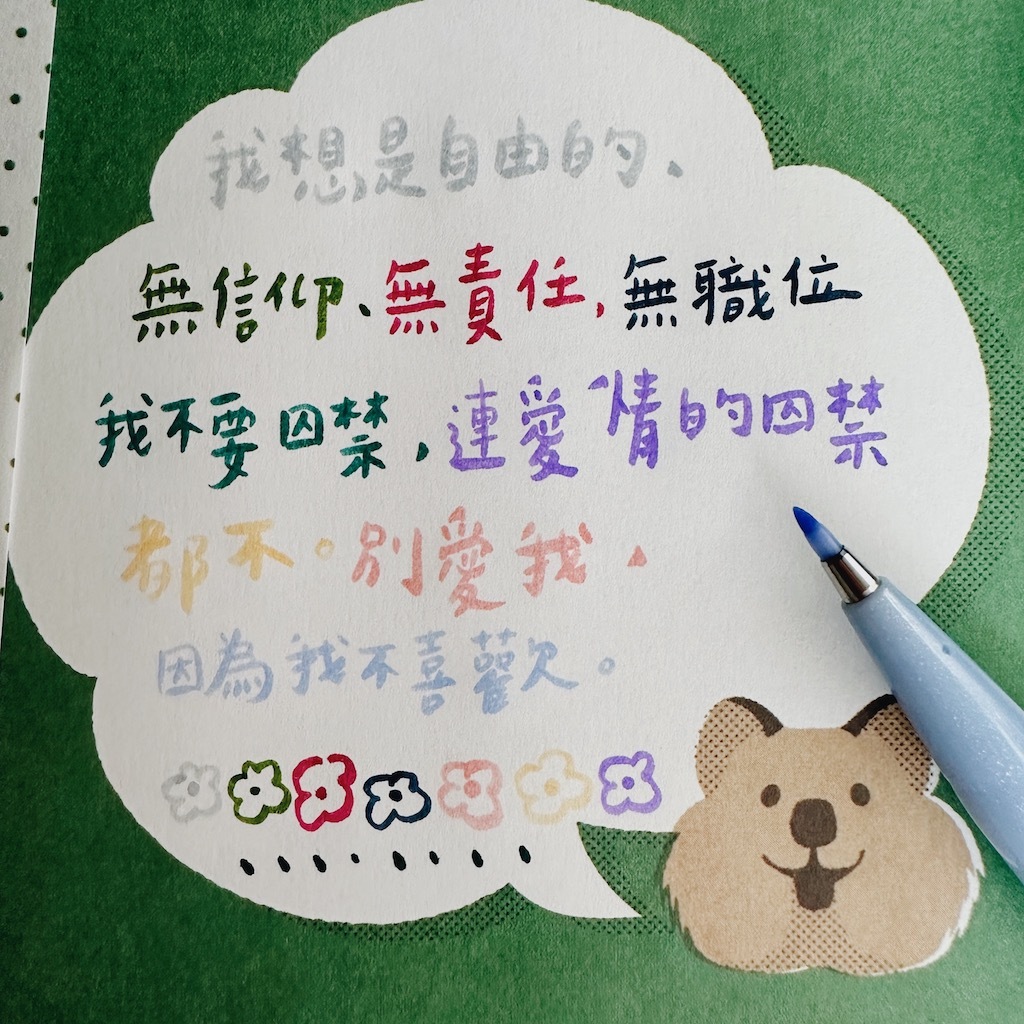 我想是自由的、
無信仰、無責任,無職位
我不要囚禁,連愛情的囚禁
都不。別愛我,
因為我不喜歡。